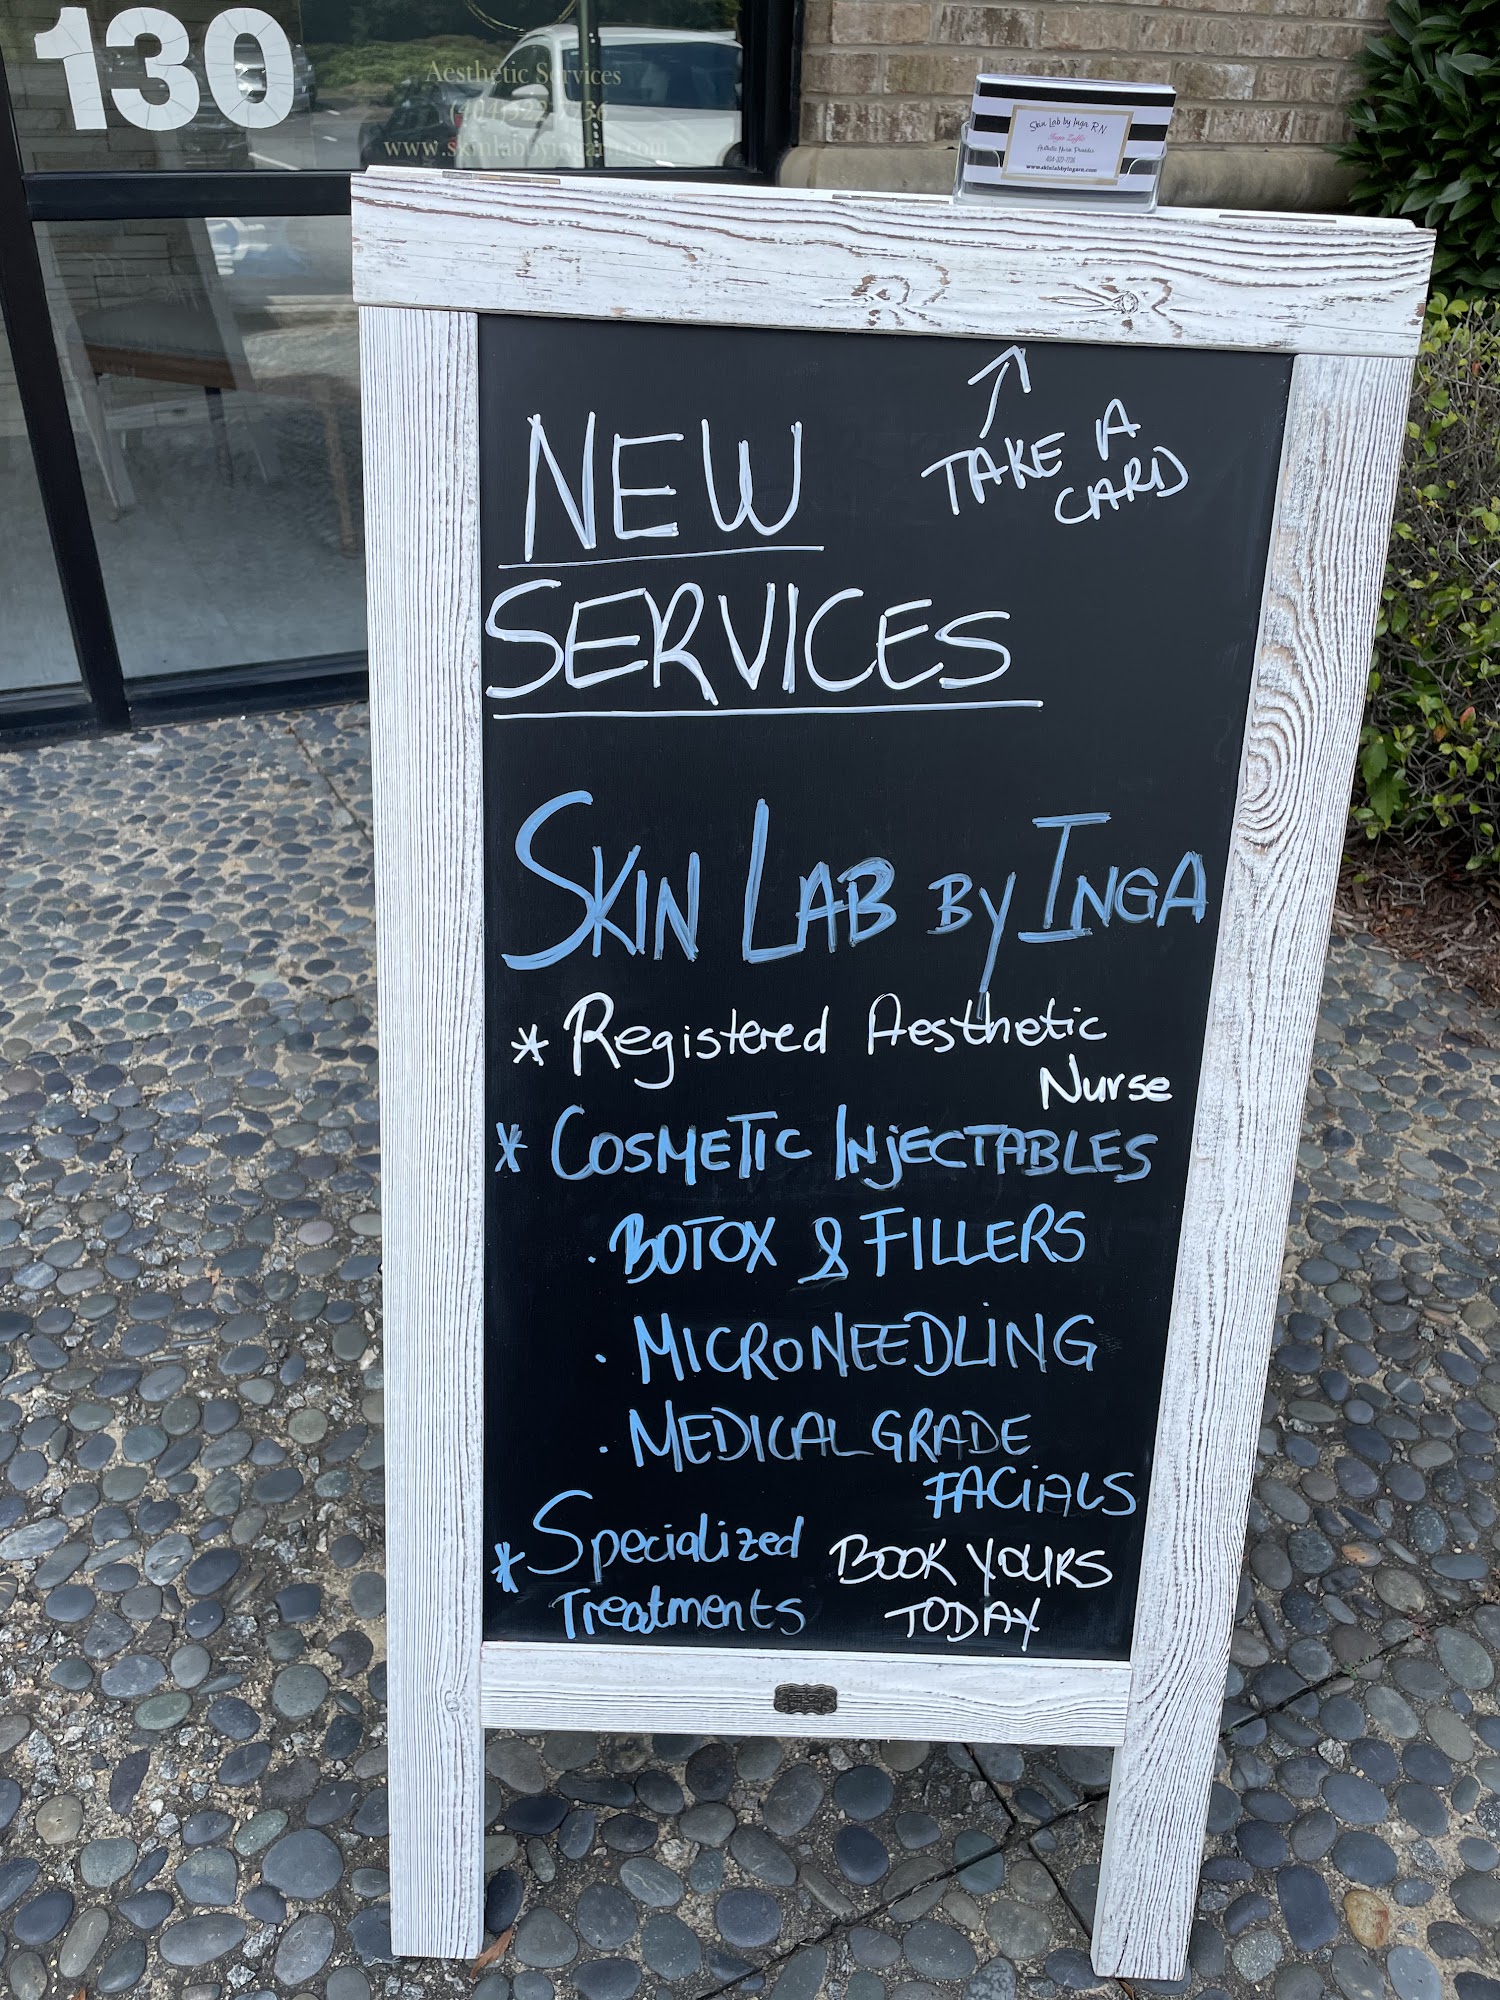 130
Aesthetic Services
www.skinlabbyingarn.com
Skin Lab by Inga R.N.
Inga
Aesthetic Nurse Provider
www.skinlabbyingarn.com
TAKE A
CARD
NEW
SERVICES
SKIN LAB BY INGA
* Registered Aesthetic
Nurse
* COSMETIC INJECTABLES
. BOTOX & FILLERS
. MICRONEEDLING
. MEDICAL GRADE
FACIALS
* Specialized
Treatments
BOOK YOURS
TODAY